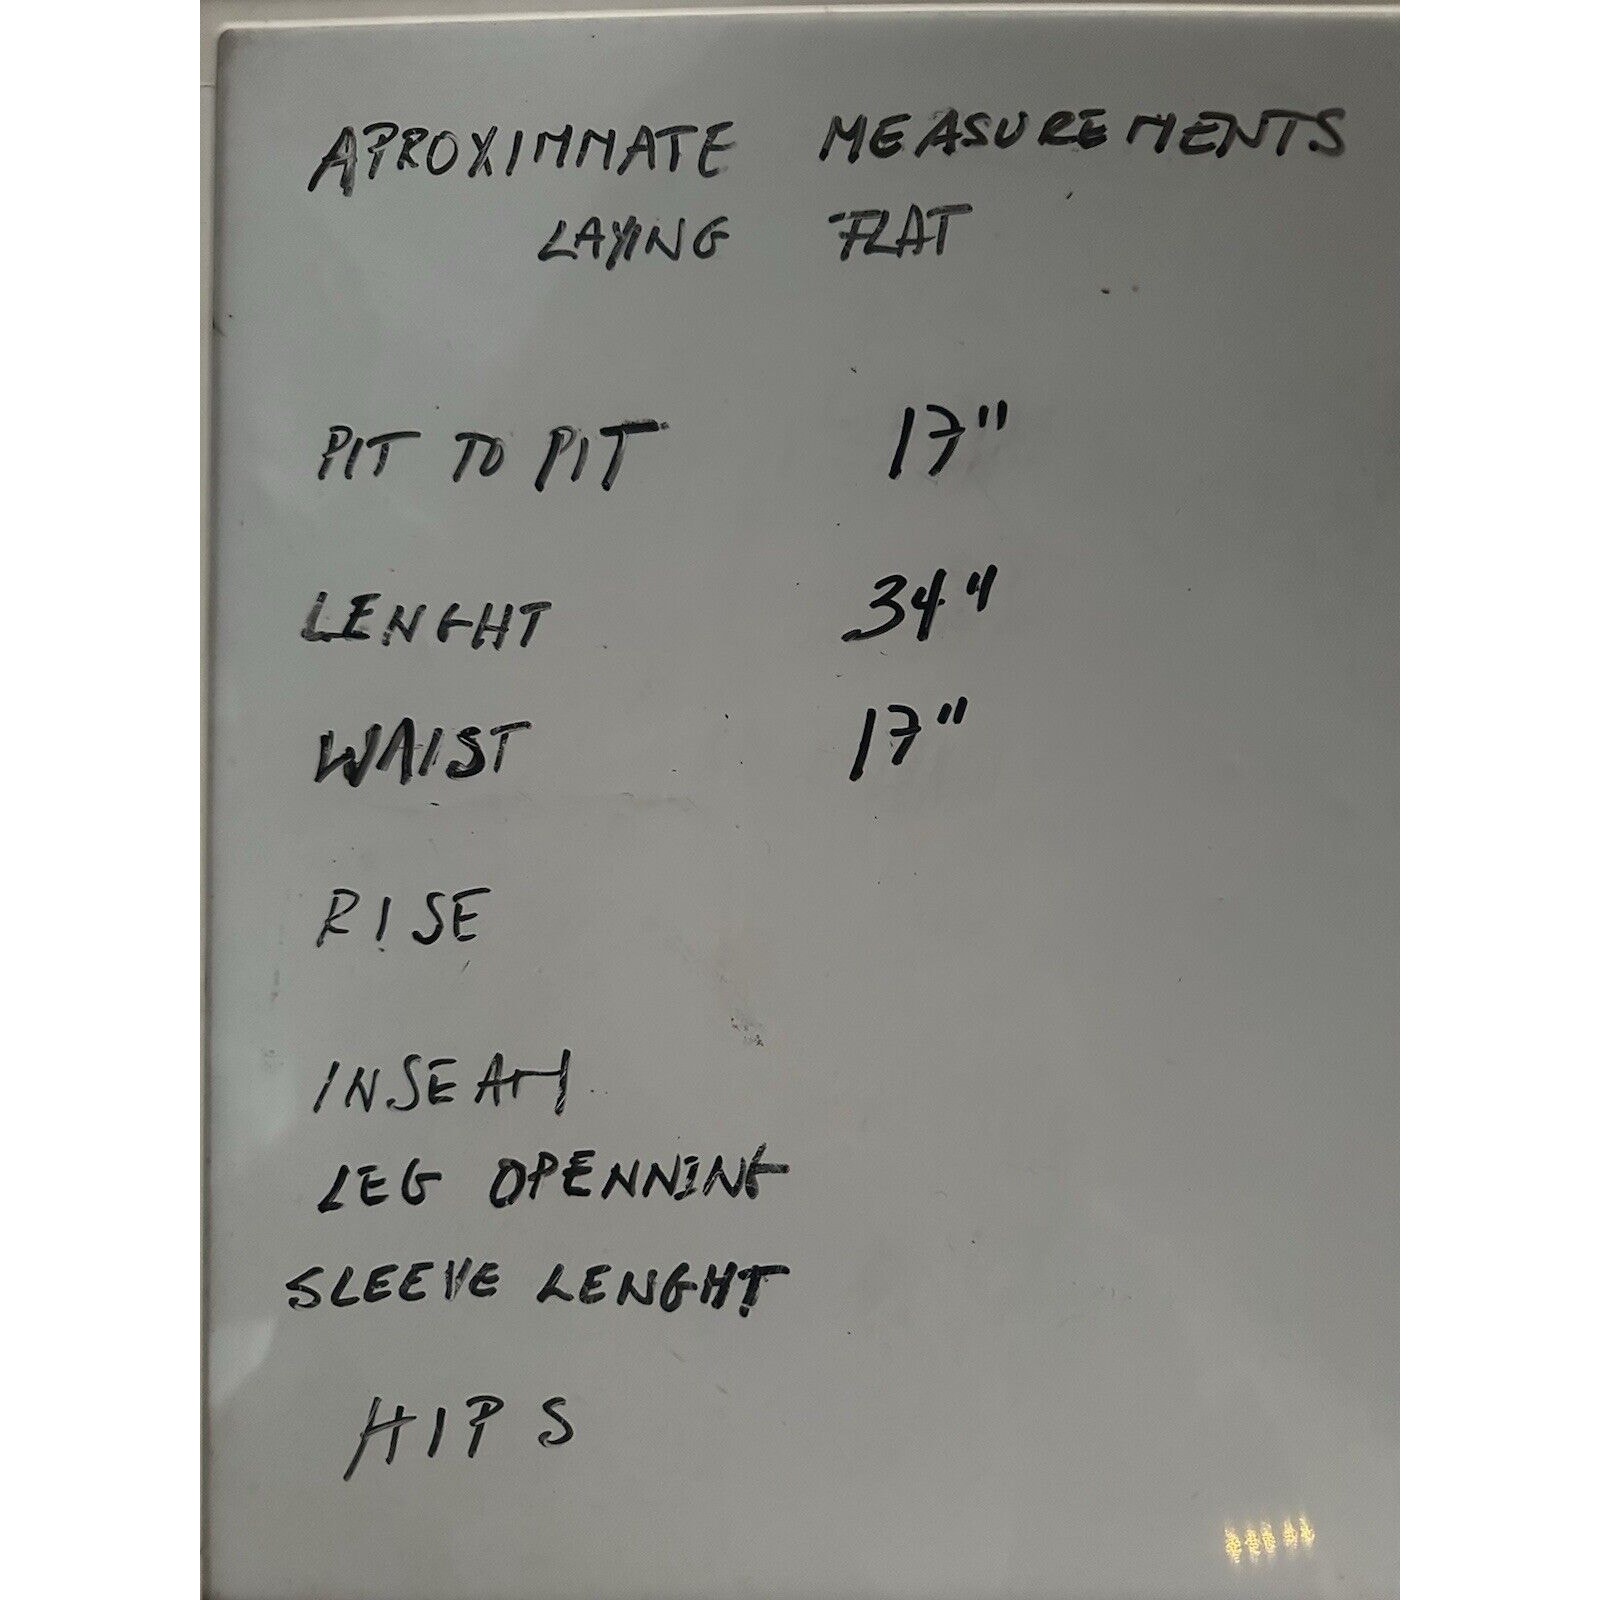 APROXIMMATE MEASUREMENTS
LAYING FLAT
PIT TO PIT 17"
LENGHT 34"
WAIST 17"
RISE
INSEAM
LEG OPENNING
SLEEVE LENGHT
HIPS